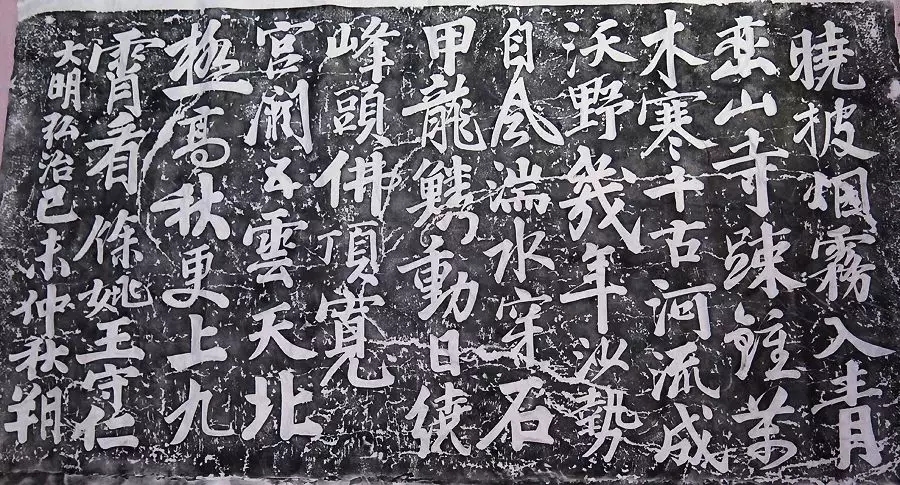 曉披烟霧入青
巒山寺踈鍾萬
木寒千古河流成
沃野幾年沙勢
自風湍水穿石
甲龍鱗動日繞
峰頭佛頂寬
宫闕五雲天北
極高秋更上九
霄看 餘姚王守仁
大明弘治己未仲秋朔